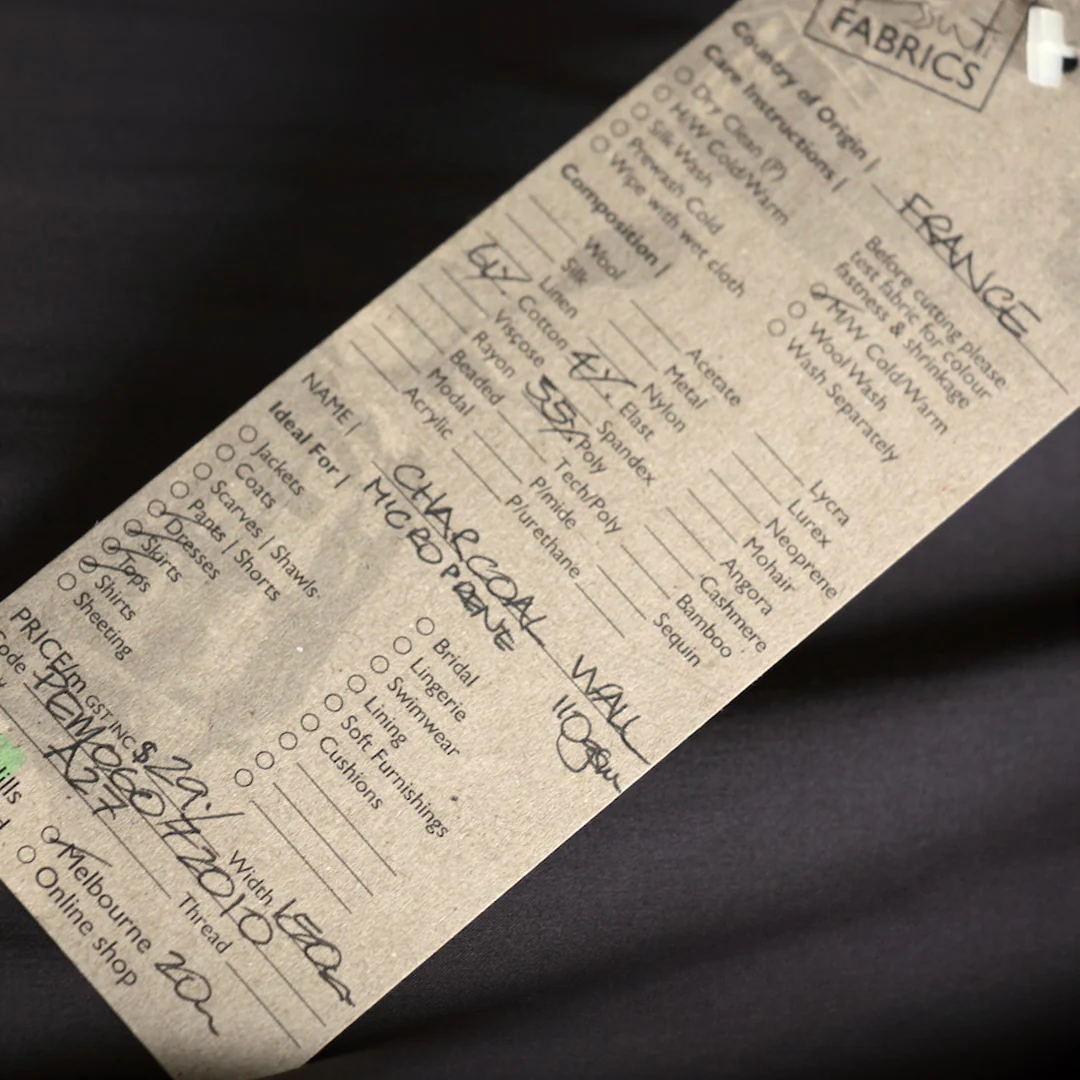 FABRICS
Country of Origin | FRANCE
Care Instructions |
Dry Clean (P)
H/W Cold/Warm
Silk Wash
Prewash Cold
Wipe with wet cloth
Before cutting please
test fabric for colour
fastness & shrinkage
M/W Cold/Warm
Wool Wash
Wash Separately
Composition |
Wool
Silk
Linen
61% Cotton
Viscose
Rayon
Beaded
Modal
Acrylic
Acetate
Metal
Nylon
4% Elast
Spandex
35% Poly
Tech/Poly
P/mide
P/urethane
Lycra
Lurex
Neoprene
Mohair
Angora
Cashmere
Bamboo
Sequin
NAME | CHARCOAL WALL
MICROPRENE 110gsm
Ideal For |
Jackets
Coats
Scarves | Shawls
Pants | Shorts
Dresses
Skirts
Tops
Shirts
Sheeting
Bridal
Lingerie
Swimwear
Lining
Soft Furnishings
Cushions
PRICE/m GST INC $29./ Width 150
A27 Thread
Melbourne 20m
Online shop